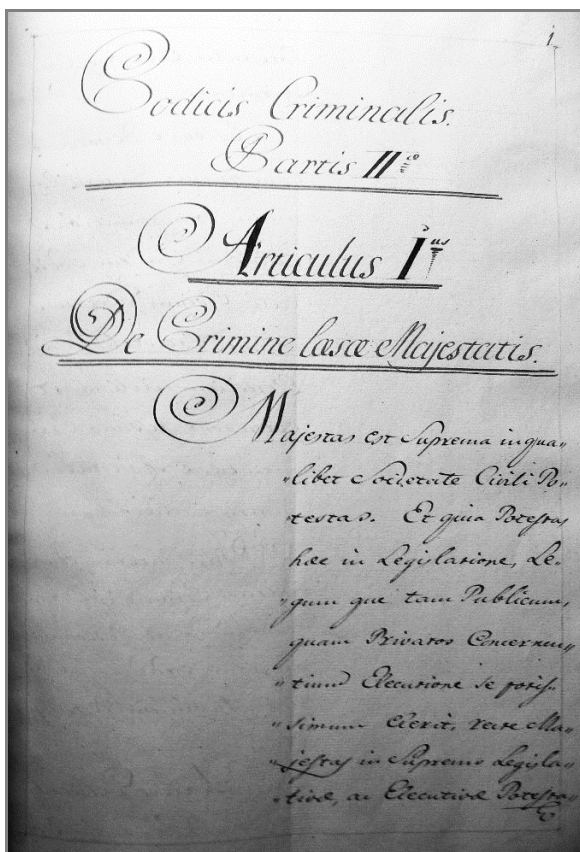 1.
Codicis Criminalis.
Partis II.
Articulus I us
De Crimine læsæ Majestatis.
Majestas est Suprema in qua„
„libet Societate Civili Po„
testas. Et quia Potestas
hæc in Legislatione, Le„
„gum que tam Publicum,
quam Privatos Concernen„
„tium Executione se potis„
„simum Exerit, recte Ma„
„jestas in Suprema Legisla„
„tivæ, ac Executivæ Potesta„